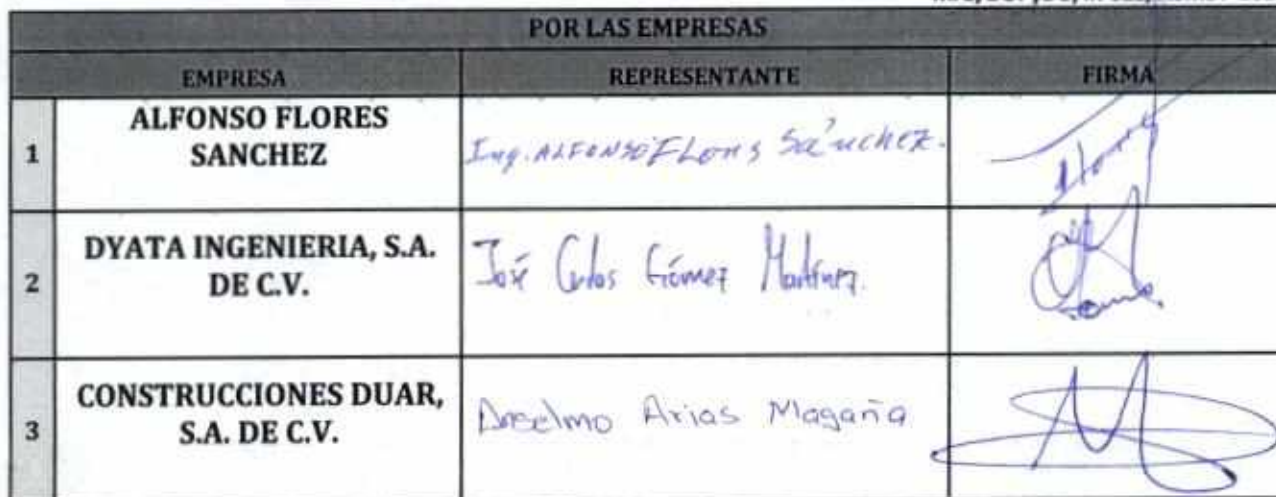 POR LAS EMPRESAS
EMPRESA REPRESENTANTE FIRMA
1 ALFONSO FLORES SANCHEZ Ing. ALFONSO FLORES Sánchez.
2 DYATA INGENIERIA, S.A. DE C.V. José Carlos Gómez Martínez.
3 CONSTRUCCIONES DUAR, S.A. DE C.V. Anselmo Arias Magaña